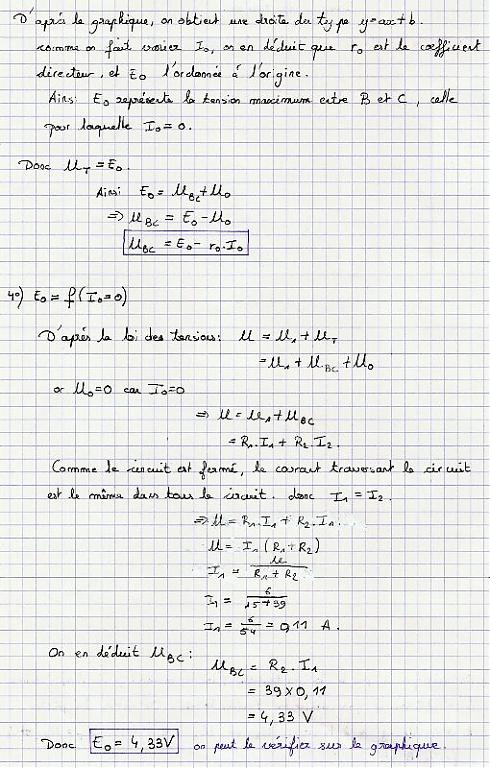 D'après le graphique, on obtient une droite du type y=ax+b.
comme on fait varier I₀, on en déduit que r₀ est le coefficient
directeur, et E₀ l'ordonnée à l'origine.
Ainsi E₀ représente la tension maximum entre B et C, celle
pour laquelle I₀=0.
Donc U_T = E₀.
Ainsi E₀ = U_BC + U₀
⇒ U_BC = E₀ - U₀
U_BC = E₀ - r₀.I₀
4°) E₀ = f(I₀=0)
D'après la loi des tensions: U = U₁ + U_T
= U₁ + U_BC + U₀
or U₀=0 car I₀=0
⇒ U = U₁ + U_BC
= R₁.I₁ + R₂.I₂.
Comme le circuit est fermé, le courant traversant le circuit
est le même dans tous le circuit. donc I₁ = I₂.
⇒ U = R₁.I₁ + R₂.I₁.
U = I₁(R₁+R₂)
I₁ = U/(R₁+R₂)
I₁ = 6/(15+39)
I₁ = 6/54 = 0,11 A.
On en déduit U_BC:
U_BC = R₂.I₁
= 39×0,11
= 4,33 V
Donc E₀ = 4,33V on peut le vérifier sur le graphique.